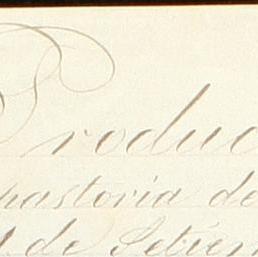 Produc
pastoria de
de Setiem